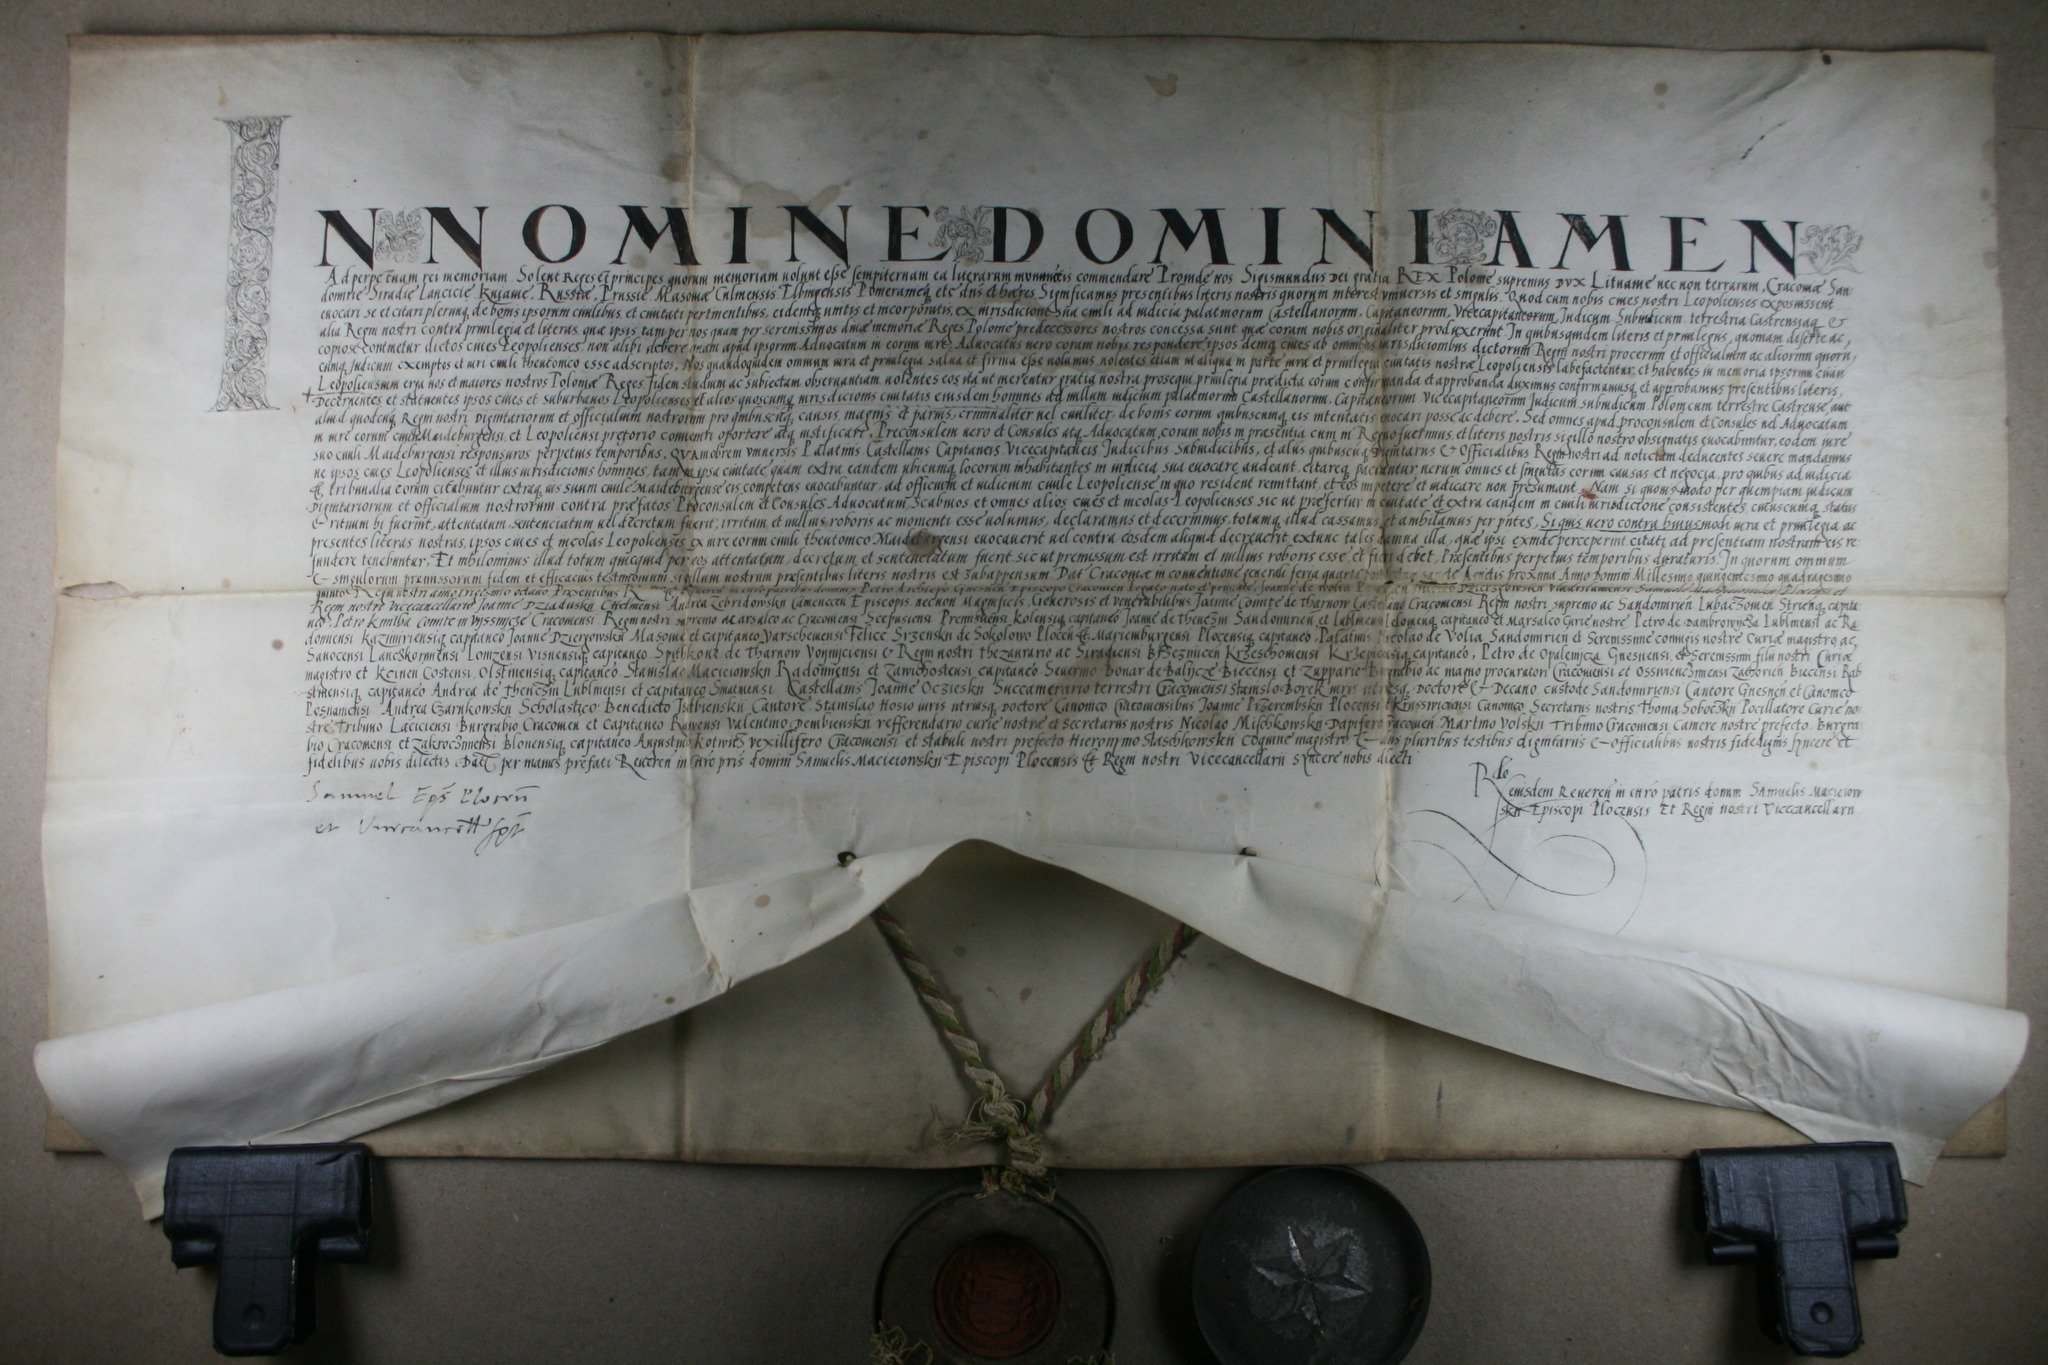 IN NOMINE DOMINI AMEN
Ad perpetuam rei memoriam Solent Reges et principes quorum memoriam volunt esse sempiternam ea literarum commendare Proinde nos Sigismundus Dei gratia REX Polonie supremus DVX Lituanie nec non terrarum Cracoviae San
domirie Siradie Lancicie Kujavie, Russiae, Prussie Masoviae Culmensis Elbingensis Pomeranieq etc dns et haeres Significamus presentibus literis nostris quorum interest universis et singulis. Quod cum nobis cives nostri Leopolienses exposuissent
evocari se et citari plerunq de bonis ipsorum civilibus et civitati pertinentibus, et incorporatis, ex iurisdictione sua civili ad iudicia palatinorum Castellanorum, Capitaneorum, Vicecapitaneorum, Iudicum Subiudicum, terrestria Castrensiaq &
alia Regni nostri contra privilegia et literas quae ipsis tam per nos quam per serenissimos divae memoriae Reges Polonie predecessores nostros concessa sunt quae coram nobis originaliter produxerunt In quibusquidem literis et privilegiis, quoniam diserte ac,
copiose continetur dictos cives Leopolienses non alibi debere quam apud ipsorum Advocatum in eorum iure Advocatus vero coram nobis respondere, ipsos demq cives ab omnibus iurisdictionibus dictorum Regni nostri procerum et officialium ac aliorum quoru
cunq Iudicum exemptos et iuri civili theutonico esse adscriptos, Nos quandoquidem omnium iura et privilegia salva et firma esse volumus nolentes etiam ut aliqua in parte iura et privilegia civitatis nostrae Leopoliensis labefactentur, et habentes in memoria ipsorum civiu
Leopoliensium erga nos et maiores nostros Poloniae Reges, fidem studium ac subiectam observantiam volentes eos ita ut merentur gratia nostra prosequi, privilegia praedicta eorum confirmanda et approbanda duximus confirmamusq et approbamus presentibus literis,
Decernentes et statuentes ipsos cives et suburbanos Leopolienses et alios quoscunq iurisdictionis civitatis eiusdem homines ad nullum iudicium palatinorum Castellanorum, Capitaneorum Vicecapitaneorum Iudicum subiudicum Polonicum terrestre Castrense aut
aliud quodcunq Regni nostri Dignitariorum et officialium nostrorum pro quibuscunq causis magnis et parvis, criminaliter vel civiliter, de bonis eorum quibuscunq eis intentatis evocari posse ac debere. Sed omnes apud proconsulem et Consules vel Advocatum
in iure eorum civili Maideburgensi, et Leopoliensi pretorio conveniri oportere atq iustificari, Preconsulem vero et Consules atq Advocatum, coram nobis in praesentia cum in Regno fuerimus, et literis nostris sigillo nostro obsignatis evocabuntur, eodem iure
suo civili Maideburgensi responsuros perpetuis temporibus, QVAmobrem universis Palatinis Castellanis Capitaneis, Vicecapitaneis Iudicibus Subiudicibus, et aliis quibuscunq Dignitariis & Officialibus Regni nostri ad noticiam deducentes severe mandamus
ne ipsos cives Leopolienses et illius iurisdictionis homines, tam in ipsa civitate quam extra eandem ubicunq locorum inhabitantes in iudicia sua evocare audeant, citareq patientur verum omnes et singulas eorum causas et negocia, pro quibus ad iudicia
et tribunalia eorum citabuntur extraq ius suum civile Maideburgense eis competens evocabuntur, ad officium et iudicium civile Leopoliense in quo resident remittant, et eos impetere et iudicare non presumant, Nam si quovismodo per quempiam iudicum
Dignitariorum et officialium nostrorum contra praefatos Proconsulem et Consules Advocatum, Scabinos et omnes alios cives et incolas Leopolienses sic ut praefertur in civitate et extra eandem in civili iurisdictione consistentes, cuiuscunq status
& ritus ubi fuerint, attentatum sentenciatum vel decretum fuerit, irritum et nullius roboris ac momenti esse volumus, declaramus et decernimus, totumq illud cassamus et annullamus per pntes, Si quis vero contra huiusmodi iura et privilegia ac
presentes literas nostras, ipsos cives et incolas Leopolienses ex iure eorum civili theutonico Maideburgensi evocaverit vel contra eosdem aliquid decreverit extunc talis damna illa, quae ipsi exinde perceperint citati ad presentiam nostram eis re
fundere tenebuntur, Et nihilominus illud totum quicquid per eos attentatum, decretum et sentenciatum fuerit, sic ut premissum est irritum et nullius roboris esse et fieri debet, Presentibus perpetuis temporibus duraturis. In quorum omnium
& singulorum premissorum fidem et efficacius testimonium sigillum nostrum praesentibus literis nostris est subappensum. Dat Cracoviae in conventione generali feria quarta proxima Anno Domini Millesimo quingentesimo quadragesimo
quinto Regni nostri anno tricesimo octavo Presentibus
Regni nostri Vicecancellario Joanne Dziadusky Chelmensi Andrea Zebridowsky Camenecen Episcopis necnon Magnificis, Generosis et venerabilibus Joanne Comite de Tharnow Castellano Cracoviensi Regni nostri supremo ac Sandomirien Lubaczovien Striensq capita
neo, Petro Kmitha Comite in Vyssnicze Cracoviensi Regni nostri supremo Marsalco ac Cracoviensi Scepusiensi Premisliensi Kolensiq capitaneo Joanne de Thenczin Sandomirien et Lublinensi capitaneo et Marsalco Curie nostre Petro de Dambrowycza Lublinensi ac Ra
domiensi Kazimiriensiq capitaneo Joanne Dzierzgowsky Masovie et capitaneo Varscheviensi Felice Srzensky de Sokolowo Plocen et Mariemburgensi Plocensiq capitaneo, Palatinis Nicolao de Volia Sandomirien et Serenissime coniugis nostre Curiae magistro ac,
Sanocensi Lanczkorunensi Lomzensi Visnensiq capitaneo Spithkone de Tharnow Voyniciensi & Regni nostri thezaurario ac Siradiensi Brzeznicen Krzeschoviensi Krzepiensiq capitaneo, Petro de Opalenicza Gnesnensi & Serenissimi filii nostri Curiae
magistro et Keinen Costensi, Olstinensiq capitaneo Stanislao Macieiowsky Radomiensi et Zawichostensi capitaneo Severino Bonar de Balycze Biecensi et Zuppario Burgrabio ac magno procuratori Cracoviensi et Ossviencimensi Zathorien Biecensi Rab
stinensiq capitaneo Andrea de Thenczin Lublinensi et capitaneo Castellanis Joanne Ocziesky Succamerario terrestri Cracoviensi Stanislao Borek iuris utriusq Doctore & Decano, custode Sandomiriensi Cantore Gnesnen et Canonico
Posnaniensi Andrea Czarnkowsky Scholastico Benedicto Isdbiensky Cantore Stanislao Hosio iuris utriusq Doctore Canonico Cracoviensibus Joanne Przerembsky Plocensi et Kruswiciensi Canonico Secretariis nostris Thoma Soboczky Pocillatore Curie no
stre Tribuno Lanciciensi Burgrabio Cracovien et Capitaneo Rawensi Valentino Dembiensky refferendario curie nostre et Secretariis nostris Nicolao Mischkowsky Dapifero Cracovien Martino Volsky Tribuno Cracoviensi Camere nostre prefecto Burgra
bio Cracoviensi et Zakroczimensi Blonensiq capitaneo Augustino Kotwicz vexillifero Cracoviensi et stabuli nostri prefecto Hieronimo Staschkowsky Coquine magistro & aliis pluribus testibus dignitariis & Officialibus nostris fidedignis syncere et
fidelibus nobis dilectis Dat per manus prefati Reveren in Chro pris domini Samuelis Macieiowsky Episcopi Plocensis Et Regni nostri Vicecancellarii syncere nobis dilecti
Samuel Eps Plocen
et Vicecancell sst
Rlo
eiusdem Reveren in Chro patris domini Samuelis Macieiow
sky Episcopi Plocensis Et Regni nostri Vicecancellarii